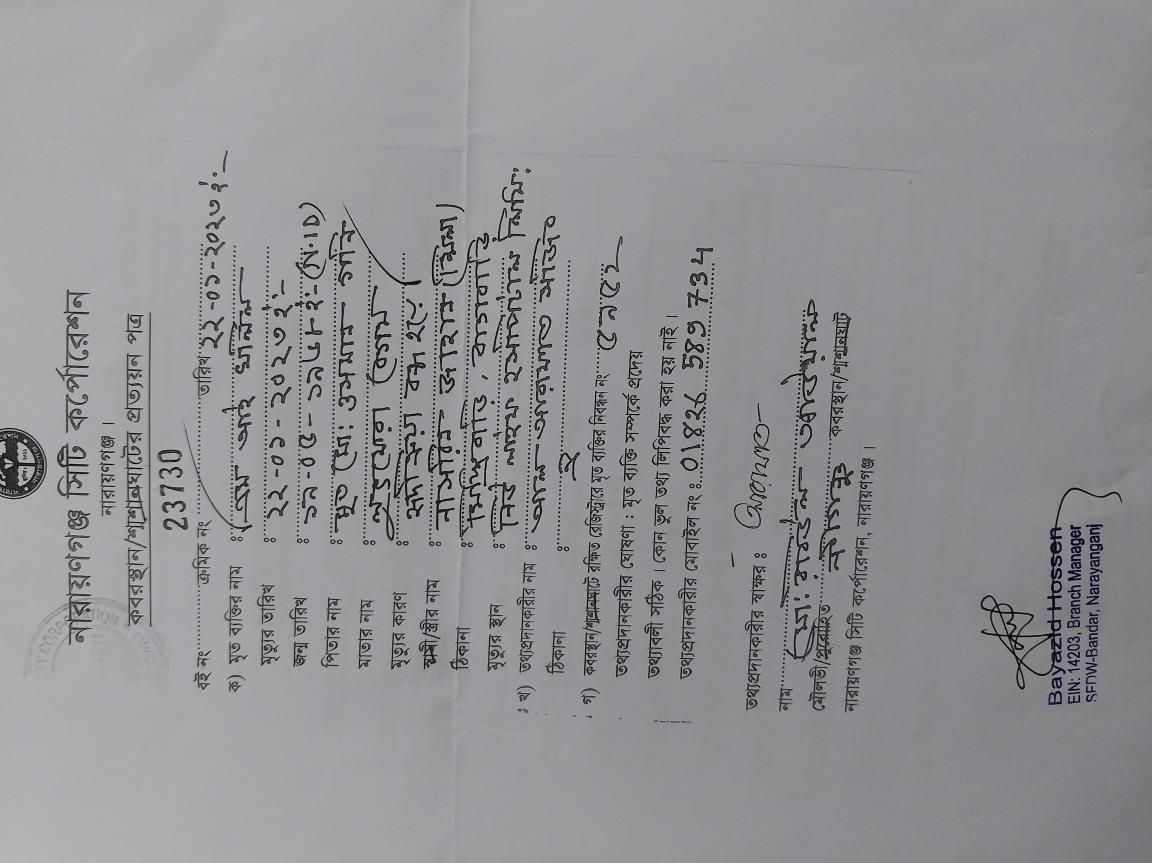 নারায়ণগঞ্জ সিটি কর্পোরেশন
নারায়ণগঞ্জ।
কবরস্থান/শ্মশানঘাটের প্রত্যয়ন পত্র
23730
বই নং ক্রমিক নং তারিখ ২২-০১-২০২৩ ইং-
ক) মৃত ব্যক্তির নাম : এম আই খলিল
মৃত্যুর তারিখ : ২২-০১-২০২৩ ইং-
জন্ম তারিখ : ১৯-০৫-১৯৬৮ ইং-(N.ID)
পিতার নাম : মৃত মো: ওসমান গনি
মাতার নাম : নুরমেহের বেগম
মৃত্যুর কারণ : হৃদ ক্রিয়া বন্ধ হয়ে।
স্বামী/স্ত্রীর নাম : নাসরিন জাহান (মিলা)
ঠিকানা :
মৃত্যুর স্থান : হসপিটাল লিমি:
খ) তথ্যপ্রদানকারীর নাম : আল-আরাফাত
ঠিকানা : ঐ
গ) কবরস্থান/শ্মশানঘাটে রক্ষিত রেজিস্ট্রারে মৃত ব্যক্তির নিবন্ধন নং
তথ্যপ্রদানকারীর ঘোষণা : মৃত ব্যক্তি সম্পর্কে প্রদেয়
তথ্যাবলী সঠিক। কোন ভুল তথ্য লিপিবদ্ধ করা হয় নাই।
তথ্যপ্রদানকারীর মোবাইল নং : 01826 589 734
তথ্যপ্রদানকারীর স্বাক্ষর :
নাম মো:
মৌলভী/পুরোহিত কবরস্থান/শ্মশানঘাট
নারায়ণগঞ্জ সিটি কর্পোরেশন, নারায়ণগঞ্জ।
Bayazid Hossen
EIN: 14203, Branch Manager
SFDW-Bandar, Narayanganj